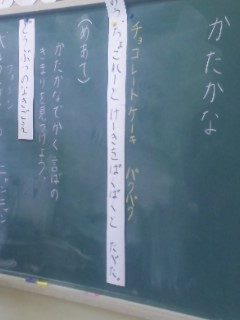 かたかな
チョコレートケーキ　パクパク
ちょこれーとけーきをぱくぱくと たべた。
(めあて)
かたかなでかく言ばの
きまりを見つけよう。
どうぶつのなきごえ